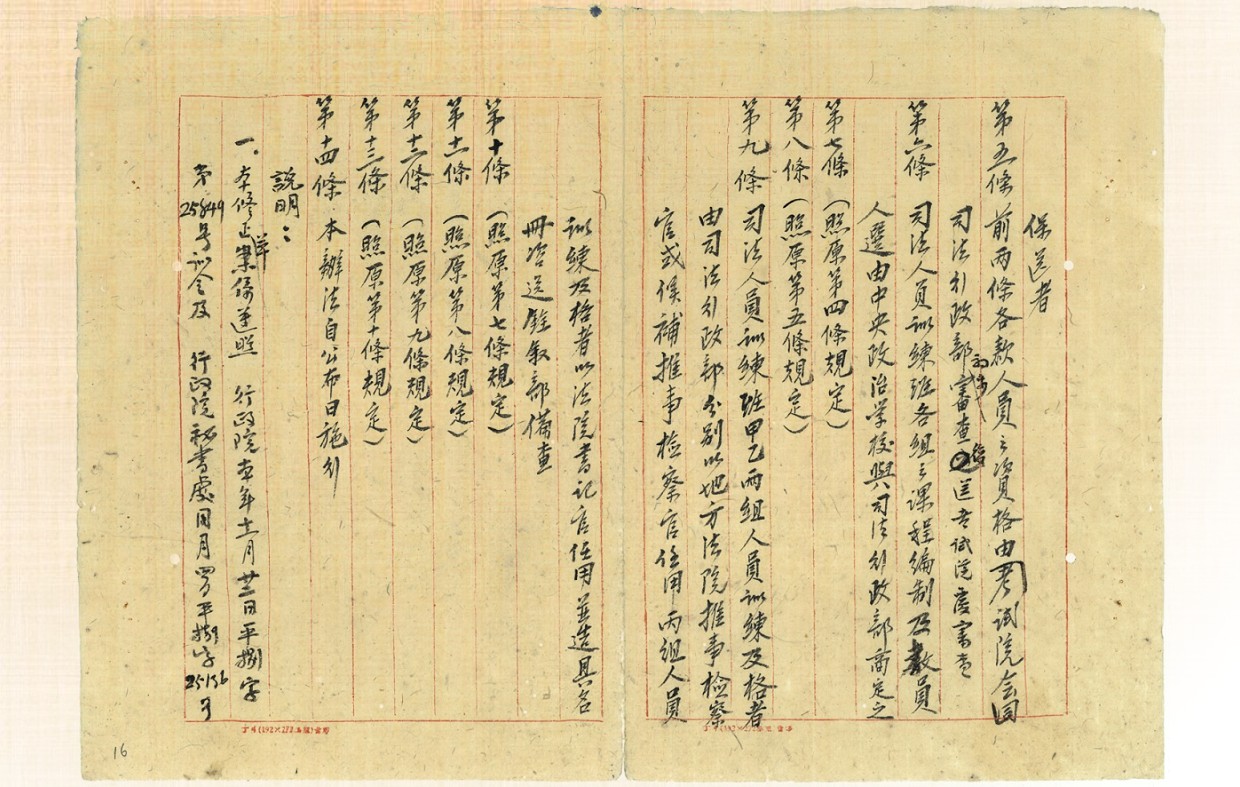 保送者
第五條 前兩條各款人員之資格由考試院会同
司法行政部初步審查後送考試院覆審查
第六條 司法人員訓練班各組之課程編制及教員
人選由中央政治学校與司法行政部商定之
第七條 (照原第四條規定)
第八條 (照原第五條規定)
第九條 司法人員訓練班甲乙兩組人員訓練及格者
由司法行政部分別以地方法院推事檢察
官或候補推事檢察官任用丙組人員
訓練及格者以法院書記官任用並造具名
冊咨送銓叙部備查
第十條 (照原第七條規定)
第十一條 (照原第八條規定)
第十二條 (照原第九條規定)
第十三條 (照原第十條規定)
第十四條 本辦法自公布日施行
說明：
一、本修正草案係遵照 行政院 年十一月廿三日平捌字
第25849号訓令及 行政院秘書處同月 平捌字25156号
16